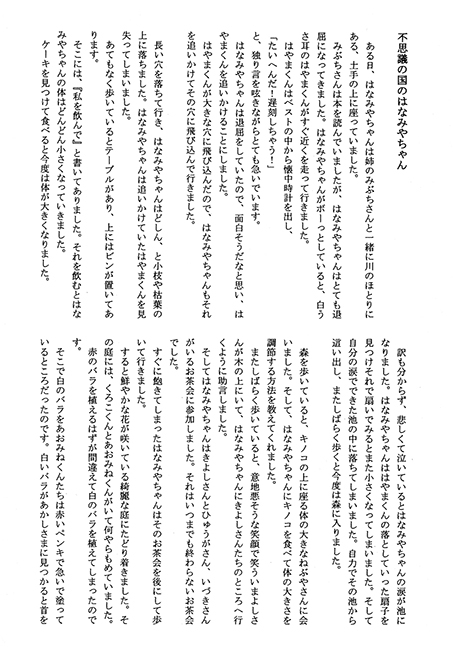 不思議の国のはなみやちゃん
ある日、はなみやちゃんは姉のみぶちさんと一緒に川のほとりに
ある、土手の上に座っていました。
みぶちさんは本を読んでいましたが、はなみやちゃんはとても退
屈になってきました。はなみやちゃんがボーっとしていると、白う
さ耳のはやまくんがすぐ近くを走って行きました。
はやまくんはベストの中から懐中時計を出し、
「たいへんだ！遅刻しちゃう！」
と、独り言を呟きながらとても急いでいます。
はなみやちゃんは退屈をしていたので、面白そうだなと思い、は
やまくんを追いかけることにしました。
はやまくんが大きな穴に飛び込んだので、はなみやちゃんもそれ
を追いかけてその穴に飛び込んで行きました。
長い穴を落ちて行き、はなみやちゃんはどしん、と小枝や枯葉の
上に落ちました。はなみやちゃんは追いかけていたはやまくんを見
失ってしまいました。
あてもなく歩いているとテーブルがあり、上にはビンが置いてあ
ります。
そこには、『私を飲んで』と書いてありました。それを飲むとはな
みやちゃんの体はどんどん小さくなっていきました。
ケーキを見つけて食べると今度は体が大きくなりました。
訳も分からず、悲しくて泣いているとはなみやちゃんの涙が池に
なりました。はなみやちゃんははやまくんの落としていった扇子を
見つけそれで扇いでみるとまた小さくなってしまいました。そして
自分の涙でできた池の中に落ちてしまいました。自力でその池から
這い出し、またしばらく歩くと今度は森に入りました。
森を歩いていると、キノコの上に座る体の大きなねぶやさんに会
いました。そして、はなみやちゃんにキノコを食べて体の大きさを
調節する方法を教えてくれました。
またしばらく歩いていると、意地悪そうな笑顔で笑ういまよしさ
んが木の上にいて、はなみやちゃんにきよしさんたちのところへ行
くように助言しました。
そしてはなみやちゃんはきよしさんとひゅうがさん、いづきさん
がいるお茶会に参加しました。それはいつまでも終わらないお茶会
でした。
すぐに飽きてしまったはなみやちゃんはそのお茶会を後にして歩
いて行きました。
すると鮮やかな花が咲いている綺麗な庭にたどり着きました。そ
の庭には、くろこくんとあおみねくんがいて何やらもめていました。
赤のバラを植えるはずが間違えて白のバラを植えてしまったので
す。
そこで白のバラをあおみねくんたちは赤いペンキで急いで塗って
いるところだったのです。白いバラがあかしさまに見つかると首を